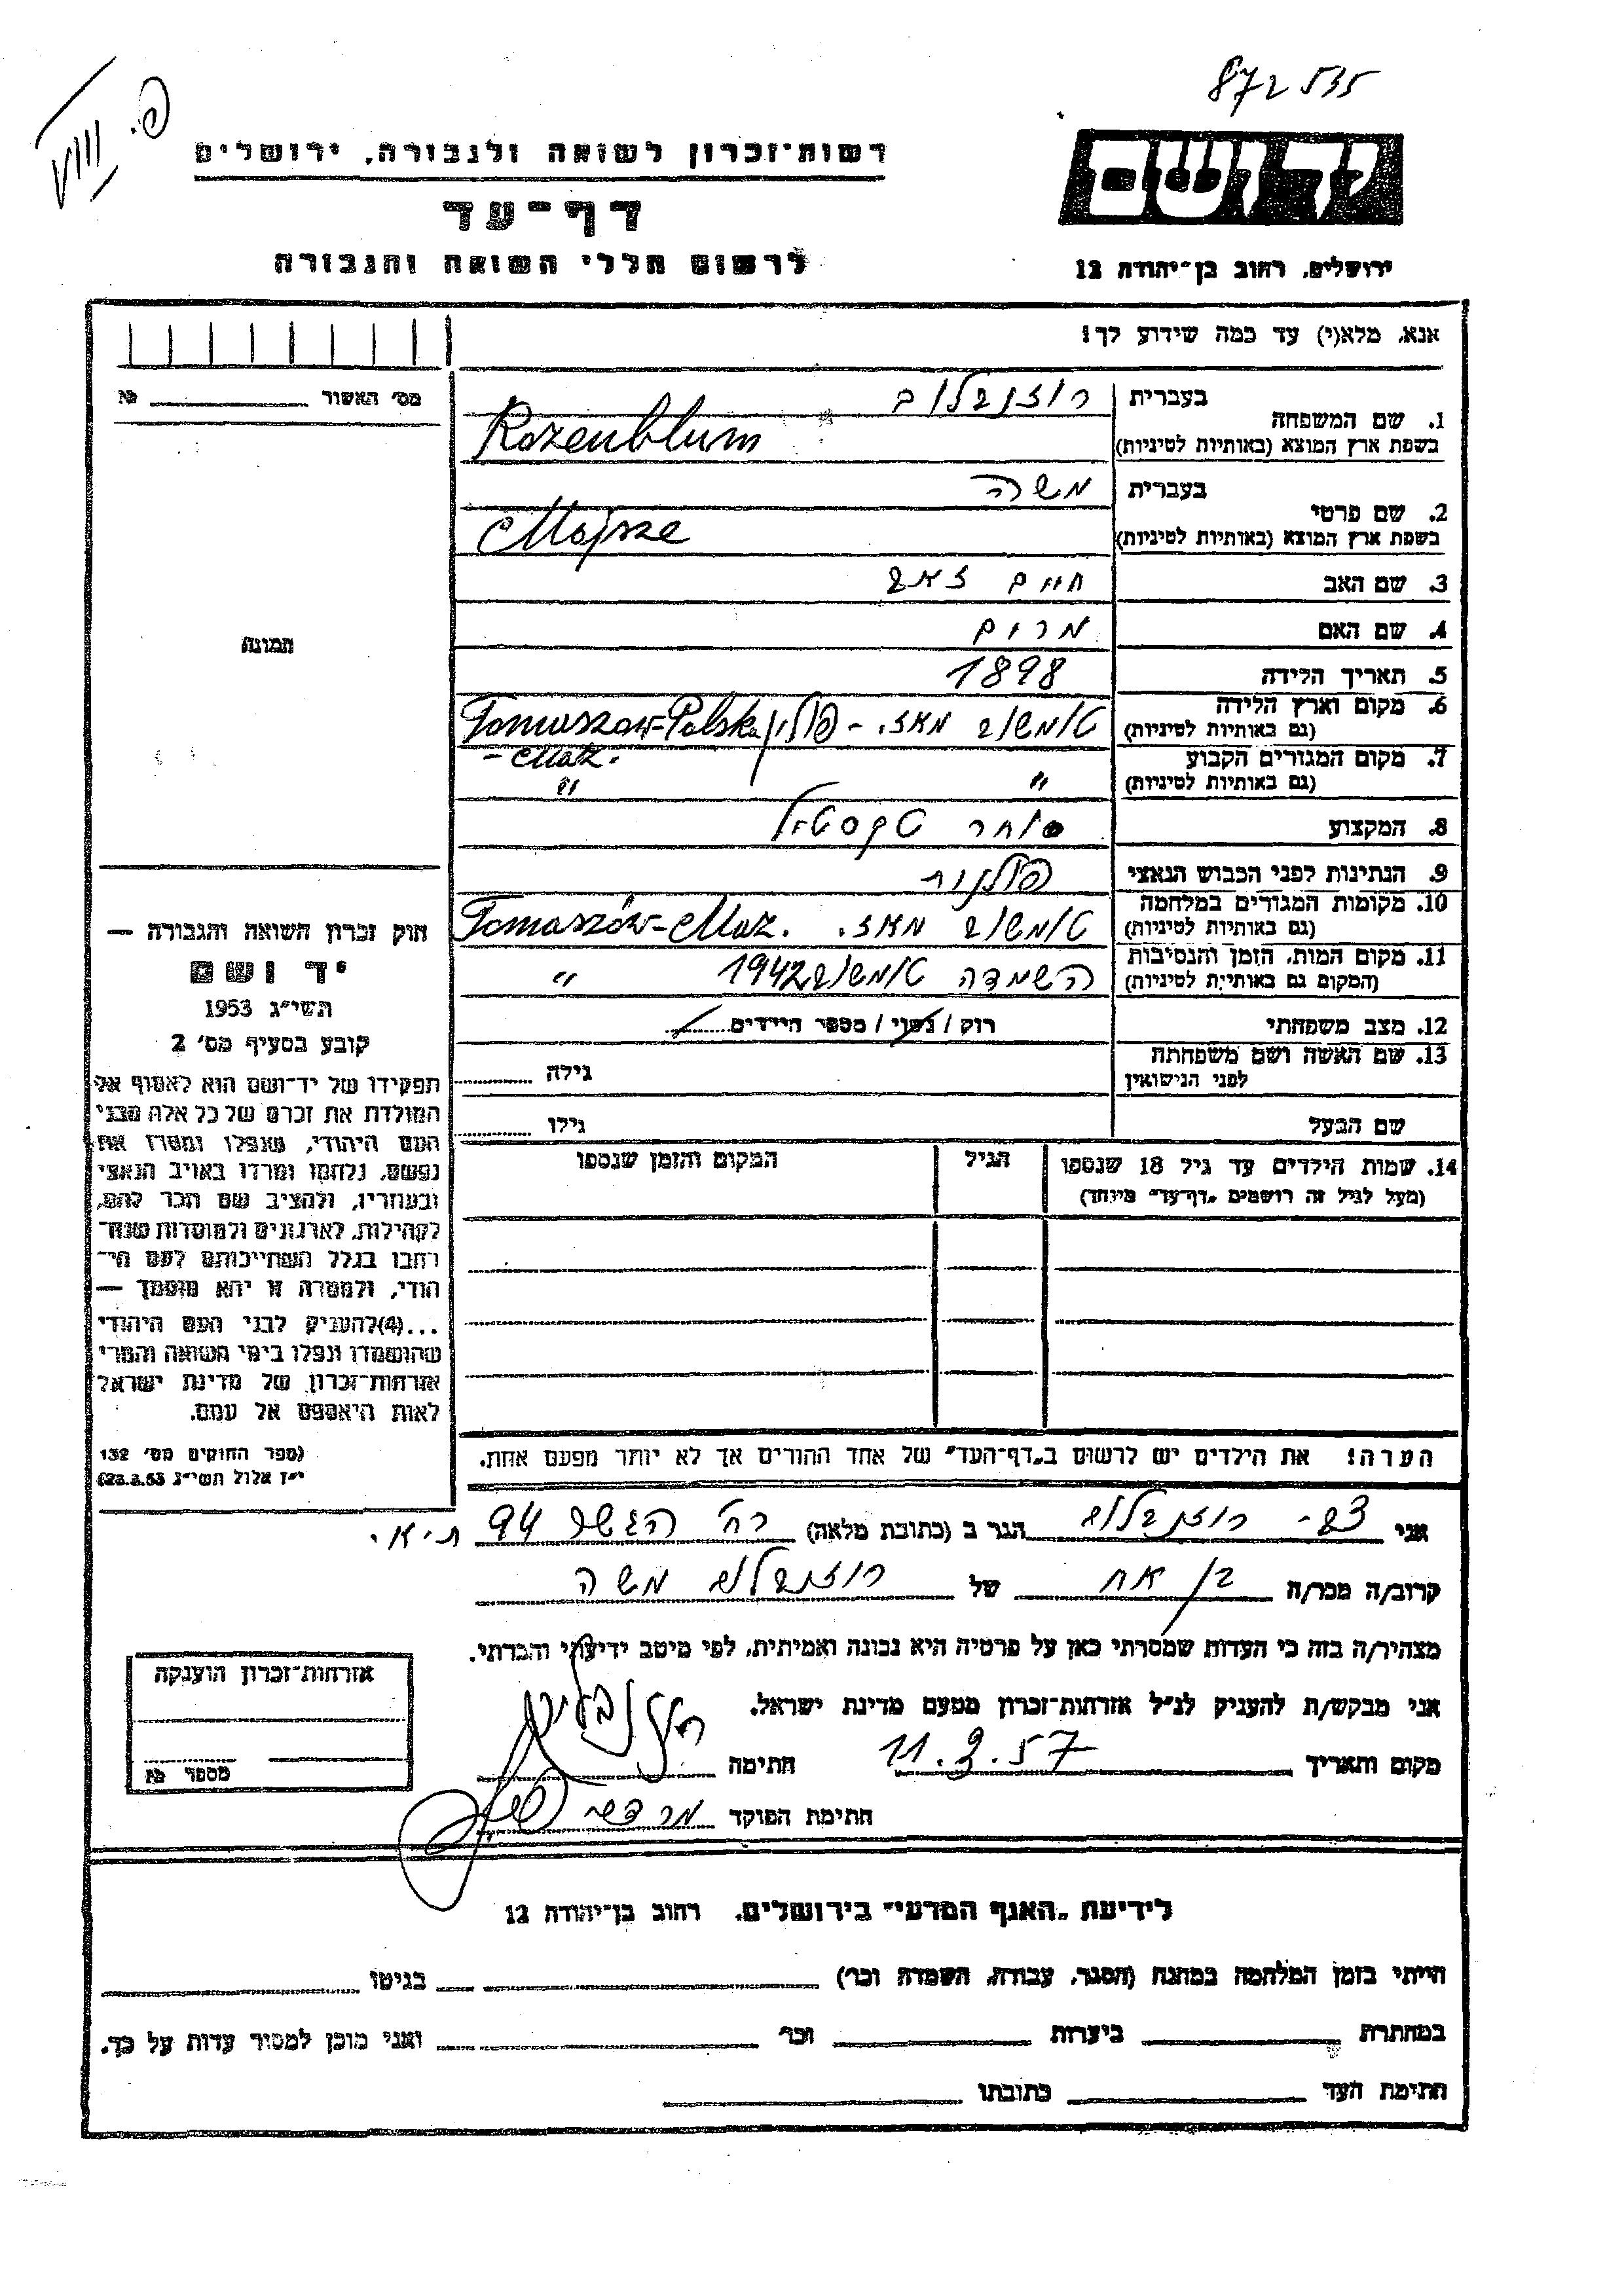 872535
פ. VIII
יד ושם
רשות־זכרון לשואה ולגבורה, ירושלים
דף־עד
לרשום חללי השואה והגבורה
ירושלים, רחוב בן־יהודה 12
אנא, מלא(י) עד כמה שידוע לך!
מס' האשור
1. שם המשפחה
בעברית רוזנבלום
בשפת ארץ המוצא (באותיות לטיניות) Rozenblum
2. שם פרטי
בעברית משה
בשפת ארץ המוצא (באותיות לטיניות) Mojsze
3. שם האב חיים זאב
4. שם האם מרים
5. תאריך הלידה 1898
6. מקום וארץ הלידה (גם באותיות לטיניות) טומשוב מאז. - פולין Tomaszow-Polska
- Maz.
7. מקום המגורים הקבוע (גם באותיות לטיניות) " "
8. המקצוע סוחר טקסטיל
9. הנתינות לפני הכבוש הנאצי פולנית
10. מקומות המגורים במלחמה (גם באותיות לטיניות) טומשוב מאז. Tomaszów-Maz.
11. מקום המות, הזמן והנסיבות (המקום גם באותיות לטיניות) השמדה טומשוב 1942 "
12. מצב משפחתי רוק / נשוי / מספר הילדים
13. שם האשה ושם משפחתה לפני הנישואין גילה
שם הבעל גילו
14. שמות הילדים עד גיל 18 שנספו
(מעל לגיל זה רושמים „דף־עד" מיוחד)
הגיל
המקום והזמן שנספו
הערה! את הילדים יש לרשום ב„דף־העד" של אחד ההורים אך לא יותר מפעם אחת.
תמונה
חוק זכרון השואה והגבורה —
יד ושם
תשי"ג 1953
קובע בסעיף מס' 2
תפקידו של יד־ושם הוא לאסוף אל
המולדת את זכרם של כל אלה מבני
העם היהודי, שנפלו ומסרו את
נפשם, נלחמו ומרדו באויב הנאצי
ובעוזריו, ולהציב שם וזכר להם,
לקהילות, לארגונים ולמוסדות שנח־
רבו בגלל השתייכותם לעם הי־
הודי, ולמטרה זו יהא מוסמך —
...(4) להעניק לבני העם היהודי
שהושמדו ונפלו בימי השואה והמרי
אזרחות־זכרון של מדינת ישראל
לאות היאספם אל עמם.
(ספר החוקים מס' 132
י"ז אלול תשי"ג 28.8.53)
אני צבי רוזנבלום הגר ב (כתובת מלאה) רח' הגשר 94 ת"א
קרוב/ה מכר/ה בן אח של רוזנבלום משה
מצהיר/ה בזה כי העדות שמסרתי כאן על פרטיה היא נכונה ואמיתית, לפי מיטב ידיעתי והכרתי.
אני מבקש/ת להעניק לנ"ל אזרחות־זכרון מטעם מדינת ישראל.
מקום ותאריך 11.3.57 חתימה רוזנבלום
חתימת הפוקד מרדכי
אזרחות־זכרון הוענקה
מספר
לידיעת „האגף המדעי" בירושלים. רחוב בן־יהודה 12
הייתי בזמן המלחמה במחנה (הסגר, עבודה, השמדה וכו') בגיטו
במחתרת ביערות וכו' ואני מוכן למסור עדות על כך.
חתימת העד כתובתו